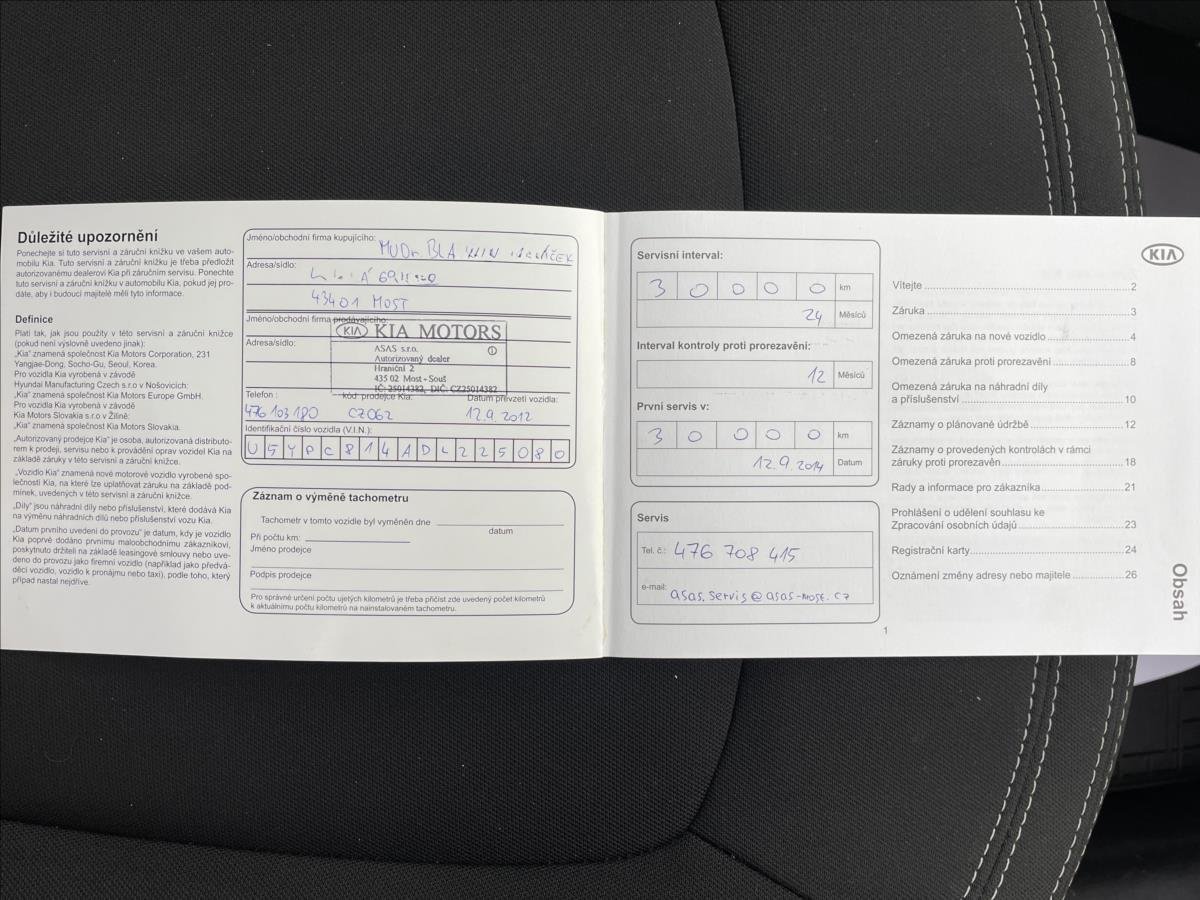 Důležité upozornění
Ponechejte si tuto servisní a záruční knížku ve vašem auto-
mobilu Kia. Tuto servisní a záruční knížku je třeba předložit
autorizovanému dealerovi Kia při záručním servisu. Ponechte
tuto servisní a záruční knížku v automobilu Kia, pokud jej pro-
dáte, aby i budoucí majitelé měli tyto informace.
Definice
Platí tak, jak jsou použity v této servisní a záruční knížce
(pokud není výslovně uvedeno jinak):
„Kia" znamená společnost Kia Motors Corporation, 231
Yangjae-Dong, Socho-Gu, Seoul, Korea.
Pro vozidla Kia vyrobená v závodě
Hyundai Manufacturing Czech s.r.o v Nošovicích:
„Kia" znamená společnost Kia Motors Europe GmbH.
Pro vozidla Kia vyrobená v závodě
Kia Motors Slovakia s.r.o v Žilině:
„Kia" znamená společnost Kia Motors Slovakia.
„Autorizovaný prodejce Kia" je osoba, autorizovaná distributo-
rem k prodeji, servisu nebo k provádění oprav vozidel Kia na
základě záruky v této servisní a záruční knížce.
„Vozidlo Kia" znamená nové motorové vozidlo vyrobené spo-
lečností Kia, na které lze uplatňovat záruku na základě pod-
mínek, uvedených v této servisní a záruční knížce.
„Díly" jsou náhradní díly nebo příslušenství, které dodává Kia
na výměnu náhradních dílů nebo příslušenství vozu Kia.
„Datum prvního uvedení do provozu" je datum, kdy je vozidlo
Kia poprvé dodáno prvnímu maloobchodnímu zákazníkovi,
poskytnuto držiteli na základě leasingové smlouvy nebo uve-
deno do provozu jako firemní vozidlo (například jako předvá-
děcí vozidlo, vozidlo k pronájmu nebo taxi), podle toho, který
případ nastal nejdříve.
Jméno/obchodní firma kupujícího: MUDr.
Adresa/sídlo:
43401 MOST
Jméno/obchodní firma prodávajícího:
KIA KIA MOTORS
Adresa/sídlo:
ASAS s.r.o.
Autorizovaný dealer
Hraniční 2
435 02 Most - Souš
IČ: 25014382, DIČ: CZ25014382
Telefon : kód prodejce Kia: Datum převzetí vozidla:
476 103 180 CZ062 12.9.2012
Identifikační číslo vozidla (V.I.N.):
U5YPC814ADL225080
Záznam o výměně tachometru
Tachometr v tomto vozidle byl vyměněn dne
datum
Při počtu km:
Jméno prodejce
Podpis prodejce
Pro správné určení počtu ujetých kilometrů je třeba přičíst zde uvedený počet kilometrů
k aktuálnímu počtu kilometrů na nainstalovaném tachometru.
Servisní interval:
30000 km
24 Měsíců
Interval kontroly proti prorezavění:
12 Měsíců
První servis v:
30000 km
12.9.2014 Datum
Servis
Tel. č.: 476 708 415
e-mail: asas.servis@asas-most.cz
KIA
Vítejte 2
Záruka 3
Omezená záruka na nové vozidlo 4
Omezená záruka proti prorezavění 8
Omezená záruka na náhradní díly
a příslušenství 10
Záznamy o plánované údržbě 12
Záznamy o provedených kontrolách v rámci
záruky proti prorezavěn 18
Rady a informace pro zákazníka 21
Prohlášení o udělení souhlasu ke
Zpracování osobních údajů 23
Registrační karty 24
Oznámení změny adresy nebo majitele 26
Obsah
1